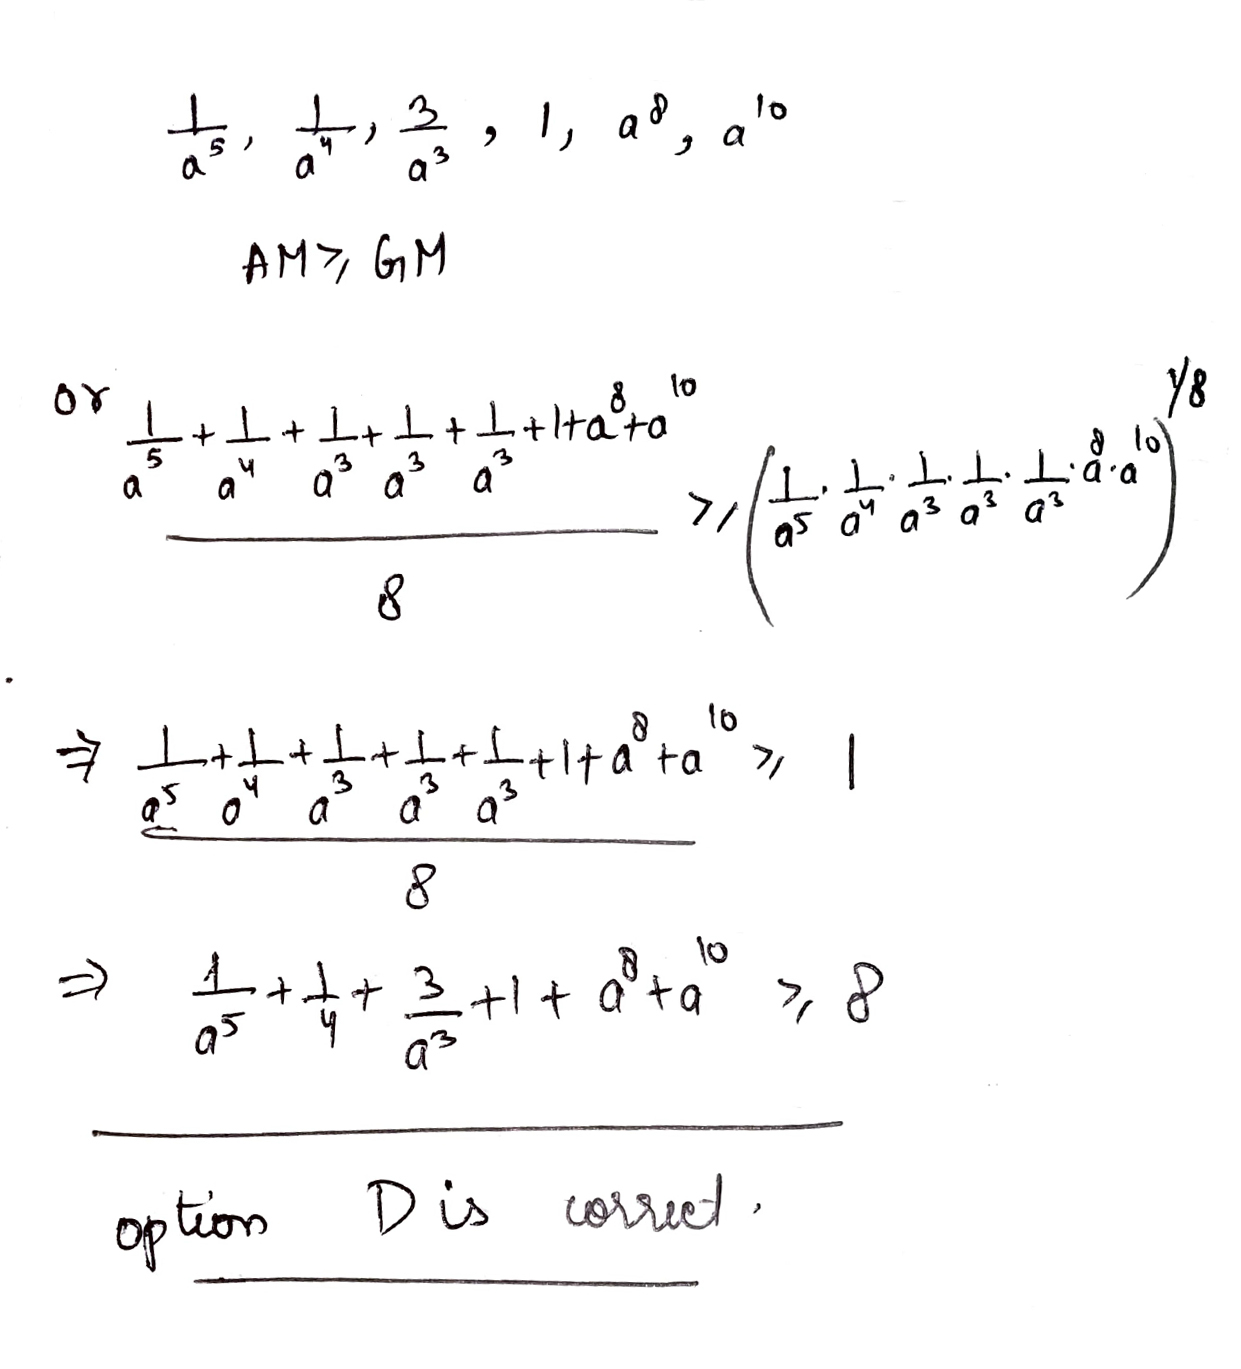 1/a⁵, 1/a⁴, 3/a³, 1, a⁸, a¹⁰
AM ⩾ GM
or (1/a⁵ + 1/a⁴ + 1/a³ + 1/a³ + 1/a³ + 1 + a⁸ + a¹⁰)/8 ⩾ (1/a⁵ · 1/a⁴ · 1/a³ · 1/a³ · 1/a³ · a⁸ · a¹⁰)^1/8
⇒ (1/a⁵ + 1/a⁴ + 1/a³ + 1/a³ + 1/a³ + 1 + a⁸ + a¹⁰)/8 ⩾ 1
⇒ 1/a⁵ + 1/4 + 3/a³ + 1 + a⁸ + a¹⁰ ⩾ 8
option D is correct.